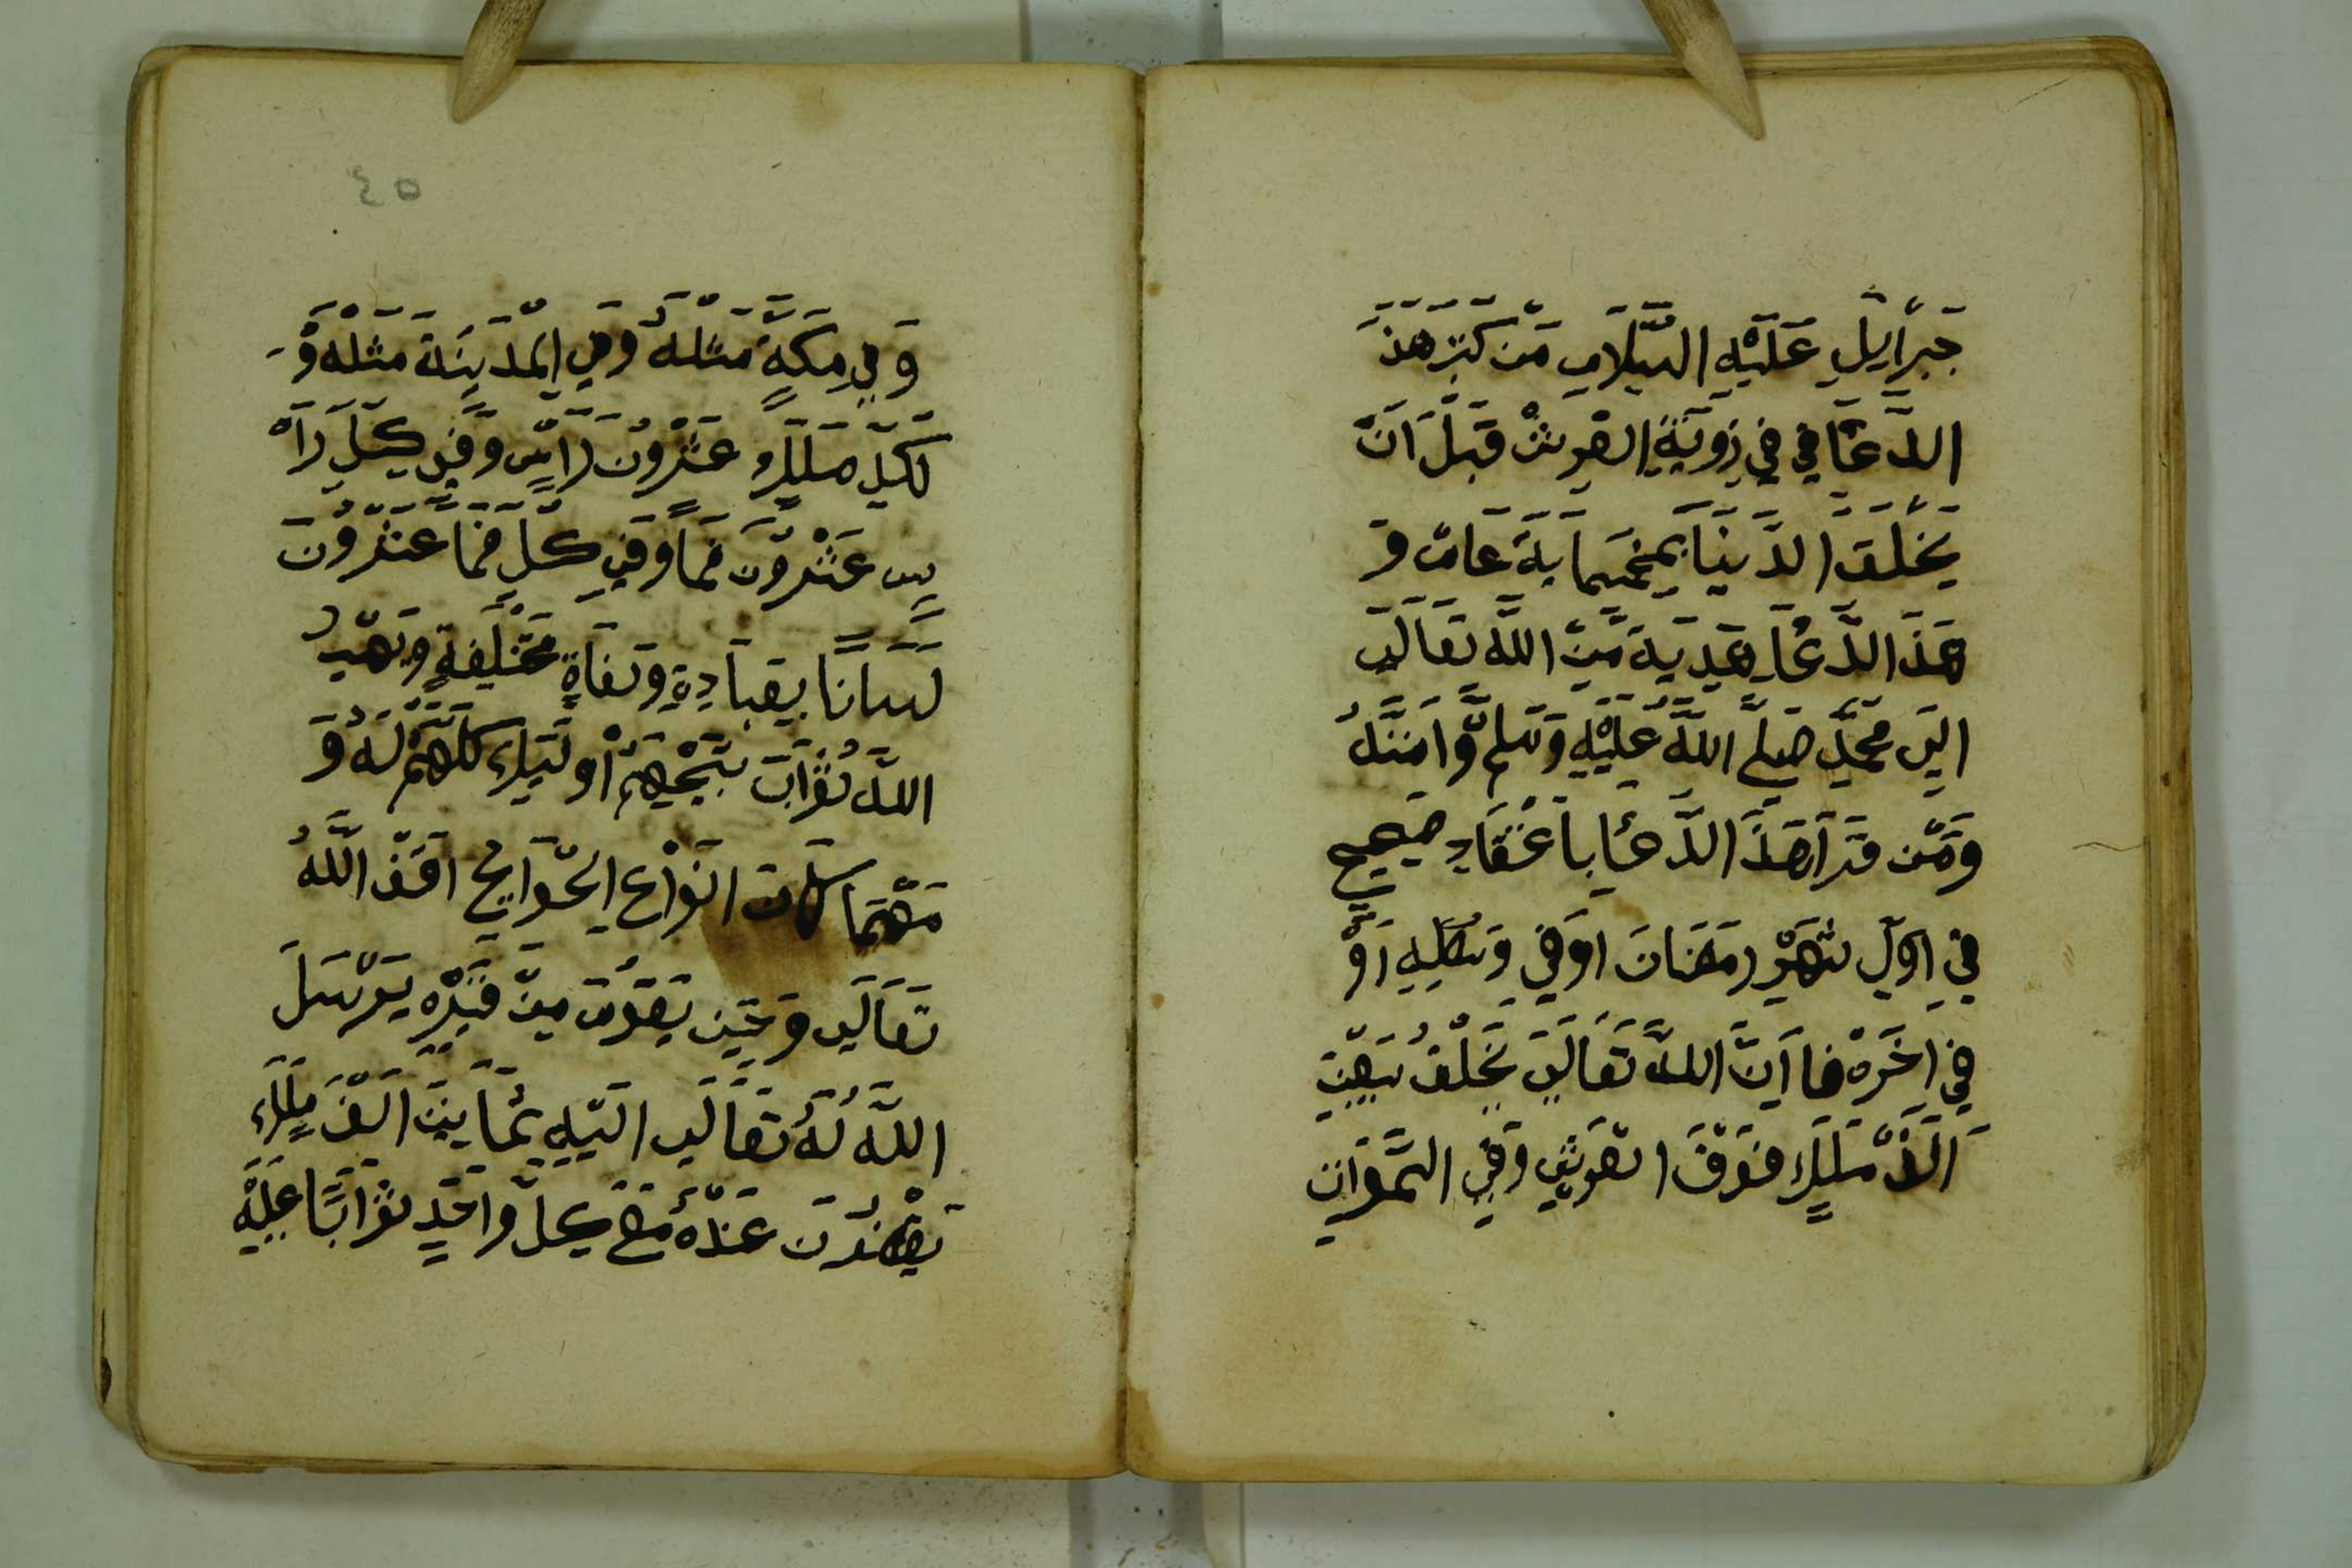 جَبْرَايِلِ عَلَيْهِ السَّلَامِ مَنْ كَتَبَ هَذَ
الدَّعَا فِي فِي زِويَةِ العْرِشْ قَبْلَ اَنَّ
يَخْلَقَ الدَّنيَا بِخمسمايَةَ عَامٌ وَ
هَذَا الدَّعَا هَدِيَةً مِّنَ اللَّه تَعَالَى
الِىَ مَحَمَّدٍ صَلىَّ اللَّهُ عَلَيْهِ وَسَلم وَّامَنَّهُ
وَمَنْ قَرَاَ هَذَا الدَّعَا بِاعْتَقَادِ صَحِيح
فِي اوّلِ شَهْرِ رمَضَانَ اَوفِي وَسَطِهِ اَوْ
فِي اخَرَهْ فااَنَّ اللَّهَ تَعَالَى يَخَلْقُ سَبعِيْنَ
اَلَفْ مَلَكٍ فَوْقَ العَرشِ وَفِي السَّمَوَاتِ
٤٥
وَفِي مَكَةٍ مَثلْهُ وَفِي الْمدَيِنَةَ مَثلْه وَ
لَكِلِّ مَلَكٍ عَشْرُونَ رَاسٍ وَفِي كَلِّ رَاَ
سٍ عَشْرُونَ فَماً وَفِي كَلِّ فَماً عَشْرُونَ
لَسَانًا بِعِبَادِةِ وَلَغَاةٍ مَخْتَلِفةٍ وَيَهّبُ
اللَّهُ ثَوْابَ تَسْبِيْحِهِمْ اُولَيِكَ كلّهَمْ لَهُ وَ
مَهْمَا كانت انَوْاع الحَّوَايِج اقَضَ اللَّهُ
تَعَالَى وَحِيَن يَقوُمَ مِنْ قَبَرْهِ يَرْسَلَ
اللَّه لَهُ تَعَالَى الَيهِ ثمَانِيَنَ اَلَفْ مَلَكٍ
يَحْضرُونَ عَنْدَهُ مَعَ كِلِّ وَاحَدٍ ثوْابًا عَلَيْهِ